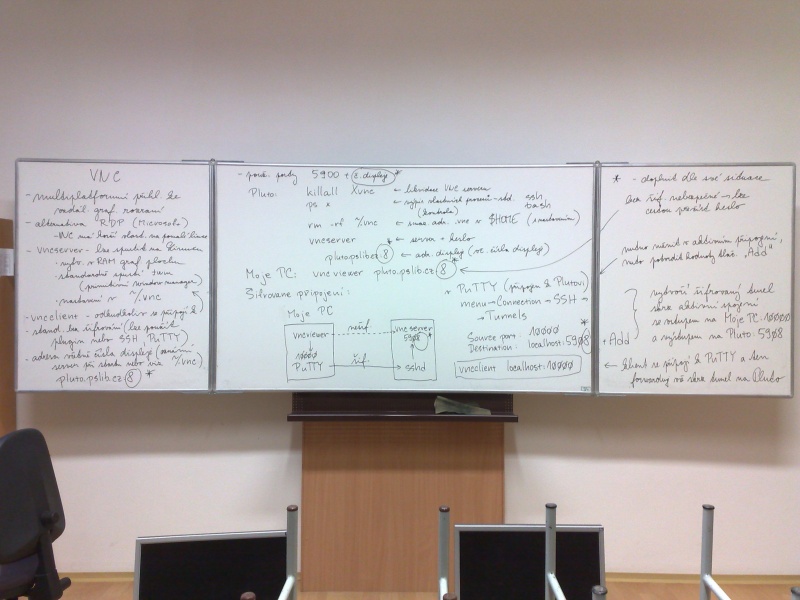 VNC
- multiplatformní přihl. ke
vzdál. graf. rozhraní
- alternativa RDP (Microsoft)
- vncserver - lze spustit na
vytv. v RAM graf. plochu
standardně spustí twm
(primitivní window manager)
nastavení v ~/.vnc
- vncclient - odkudkoliv se připojí
- stand. bez šifrování (lze použít
plugin nebo SSH, PuTTY)
- adresa včetně čísla displeje
server při startu nebo viz ~/.vnc)
pluto.pslib.cz:8 *
- použ. porty 5900 + č. displeje *
Pluto: killall Xvnc ← likvidace VNC serveru
ps x ← výpis vlastních procesů - std. ssh
(kontrola) bash
rm -rf ~/.vnc ← smaže adr. .vnc v $HOME (s nastavením)
vncserver ← server + heslo
pluto.pslib.cz:8 ← adr. displeje (vč. čísla displeje)
Moje PC: vncviewer pluto.pslib.cz:8 *
Šifrované připojení:
* PuTTY (připojen k Plutovi)
menu → Connection → SSH →
→ Tunnels
Source port: 10000 *
Destination: localhost:5908
+ Add
vncclient localhost:10000
Moje PC
vncviewer
nešif.
vncserver
5908
10000
PuTTY
šif.
sshd
* - doplnit dle své situace
bez šif. nebezpečné - lze
cestou přečíst heslo
nutno měnit v aktivním připojení,
nutno potvrdit hodnoty tlač. "Add"
vytvoří šifrovaný tunel
skrz aktivní spojení
se vstupem na Moje PC:10000
a výstupem na Pluto:5908
← klient se připojí k PuTTY a ten
na Pluto